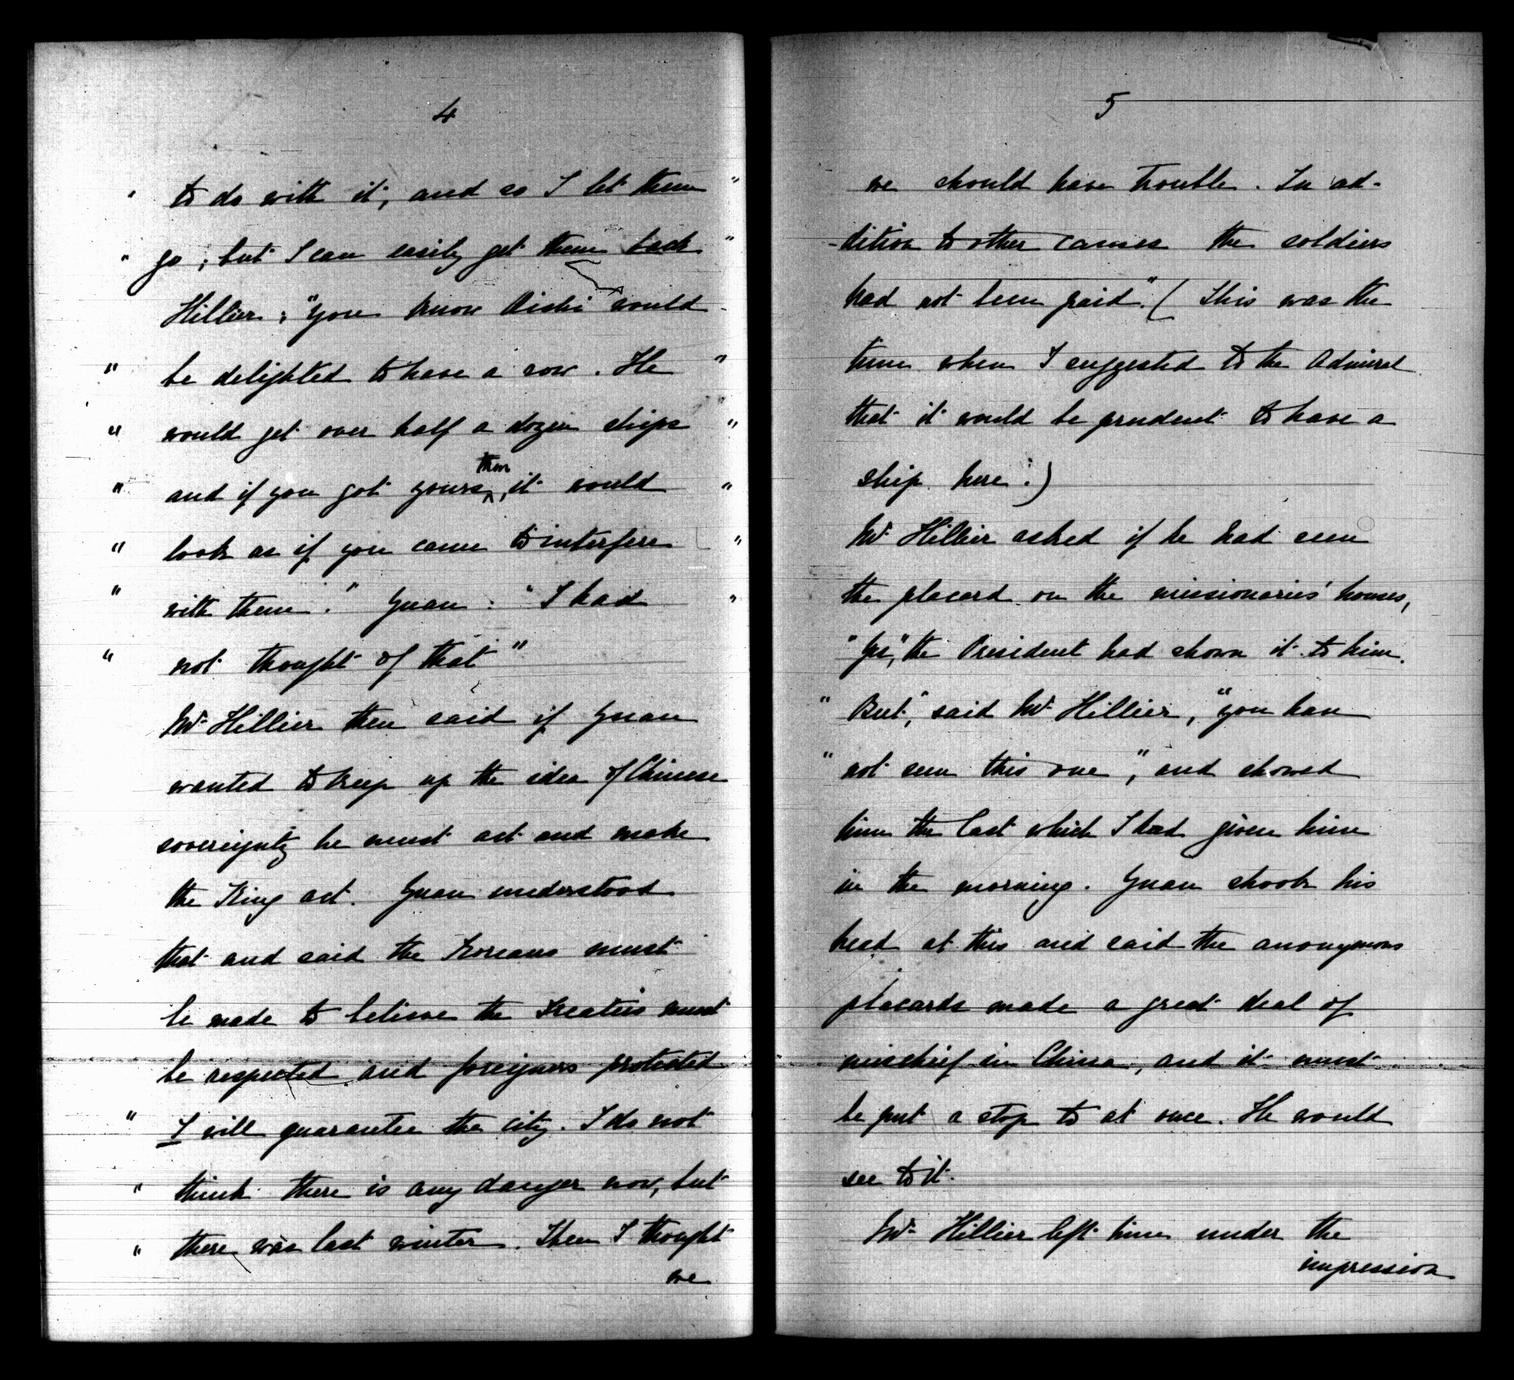 4
" to do with it, and so I let them "
" go; but I can easily get them back "
Hillier: "You know Oishi would
" be delighted to have a row. He "
" would get over half a dozen ships "
" and if you got yours then, it would "
" look as if you came to interfere "
" with them." Yuan: "I had "
" not thought of that"
Mr Hillier then said if Yuan
wanted to keep up the idea of Chinese
sovereignty he must act and make
the King act. Yuan understood
that and said the Koreans must
be made to believe the Treaties must
be respected and foreigners protected
" I will guarantee the city. I do not
" think there is any danger now, but
" there was last winter. Then I thought
we
5
we should have trouble. In ad-
-dition to other causes the soldiers
had not been paid". (This was the
time when I suggested to the Admiral
that it would be prudent to have a
ship here.)
Mr Hillier asked if he had seen
the placard on the missionaries' houses,
"Yes," the President had shown it to him.
" But," said Mr Hillier, "you have
" not seen this one", and showed
him the last which I had given him
in the morning. Yuan shook his
head at this and said the anonymous
placards made a great deal of
mischief in China, and it must
be put a stop to at once. He would
see to it.
Mr Hillier left him under the
impression